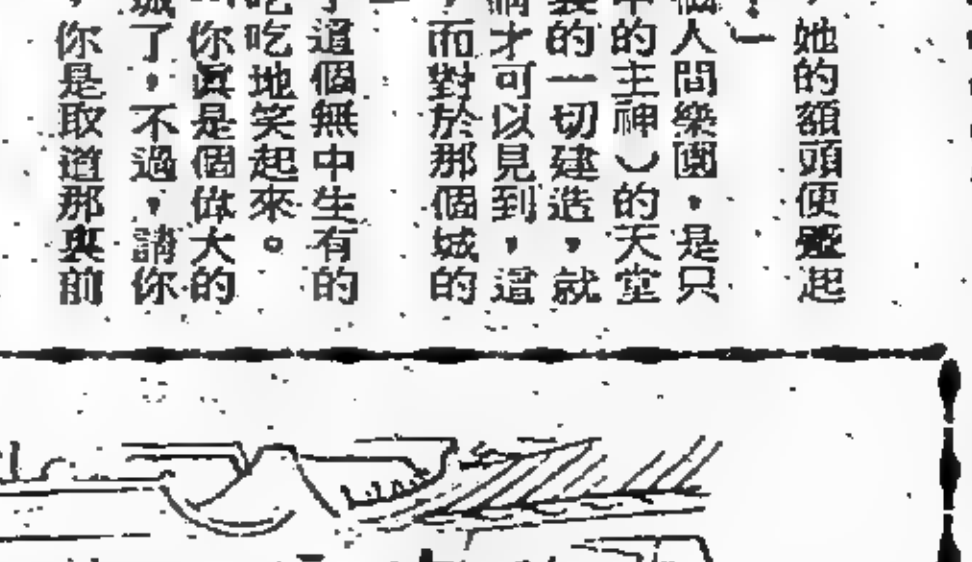 ，她的額頭便蹙起
個人間樂園，是只
中的主神）的天堂
的一切建造，就
才可以見到，這
，而對於那個城的
了這個無中生有的
吃吃地笑起來。
你眞是個偉大的
城了，不過，請你
，你是取道那與前